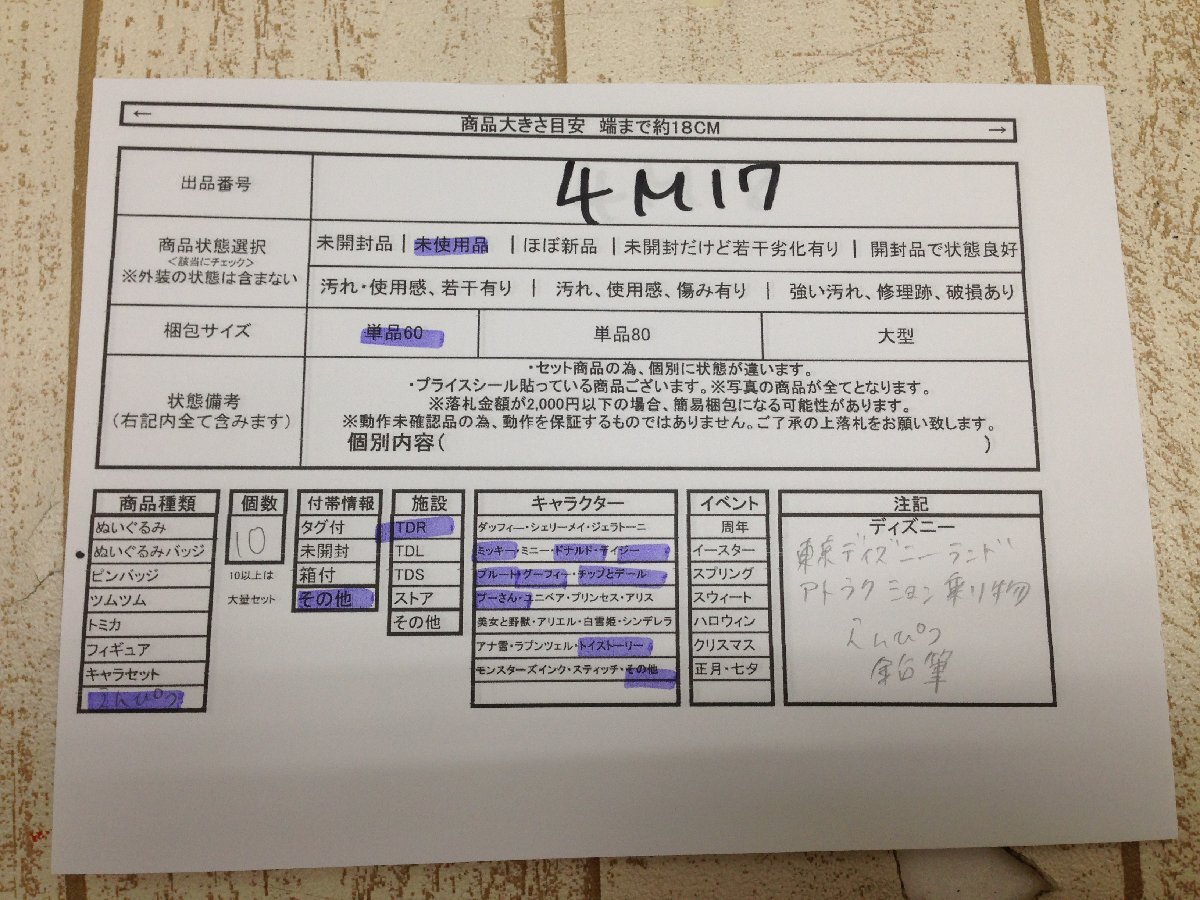 ← 商品大きさ目安 端まで約18CM →
出品番号 4M17
商品状態選択
<該当にチェック>
※外装の状態は含まない
未開封品 | 未使用品 | ほぼ新品 | 未開封だけど若干劣化有り | 開封品で状態良好
汚れ・使用感、若干有り | 汚れ、使用感、傷み有り | 強い汚れ、修理跡、破損あり
梱包サイズ 単品60 単品80 大型
状態備考
(右記内全て含みます)
・セット商品の為、個別に状態が違います。
・プライスシール貼っている商品ございます。※写真の商品が全てとなります。
※落札金額が2,000円以下の場合、簡易梱包になる可能性があります。
※動作未確認品の為、動作を保証するものではありません。ご了承の上落札をお願い致します。
個別内容( )
商品種類
ぬいぐるみ
・ぬいぐるみバッジ
ピンバッジ
ツムツム
トミカ
フィギュア
キャラセット
えんぴつ
個数
10
10以上は
大量セット
付帯情報
タグ付
未開封
箱付
その他
施設
TDR
TDL
TDS
ストア
その他
キャラクター
ダッフィー・シェリーメイ・ジェラトーニ
ミッキー・ミニー・ドナルド・デイジー
プルート・グーフィー・チップとデール
プーさん・ユニベア・プリンセス・アリス
美女と野獣・アリエル・白雪姫・シンデレラ
アナ雪・ラプンツェル・トイストーリー
モンスターズインク・スティッチ・その他
イベント
周年
イースター
スプリング
スウィート
ハロウィン
クリスマス
正月・七夕
注記
ディズニー
東京ディズニーランド
アトラクション乗り物
えんぴつ
鉛筆